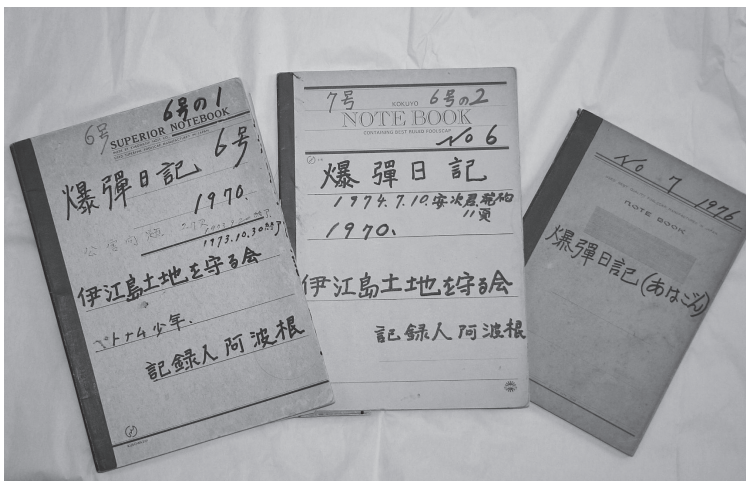 6号の1
6号
SUPERIOR NOTEBOOK
爆彈日記 6号
1970.
1973.10.30
伊江島土地を守る会
ベトナム少年、
記録人 阿波根
7号
6号の2
KOKUYO
NOTE BOOK
CONTAINING BEST RULED FOOLSCAP
No 6
爆彈日記
1974.7.10.
1970.
伊江島土地を守る会
記録人 阿波根
No 7 1976
NOTE BOOK
爆彈日記(あはごん)